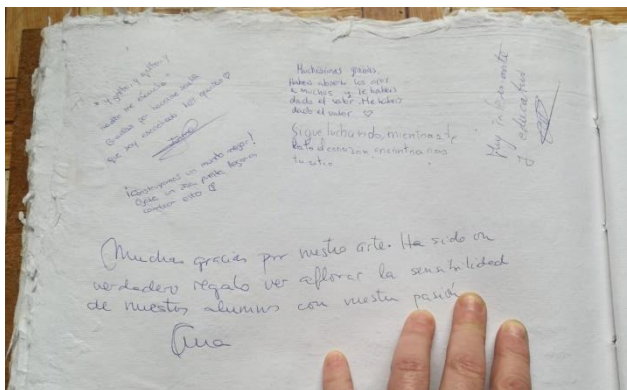 "Y grito, y grito, y
nadie me escucha"
Gracias por hacerme sentir
que soy escuchado. Mil gracias ♡
¡Construyamos un mundo mejor!
cambiar esto
Muchísimas gracias.
Habéis abierto los ojos
a muchos y le habéis
dado el valor. Me habéis
dado el valor ♡
Sigue luchando, mientras te
late el corazón encontraras
tu sitio
Muy interesante
y educativo
Muchas gracias por vuestro arte. Ha sido un
verdadero regalo ver aflorar la sensibilidad
de nuestros alumnos con vuestra pasión
Ana